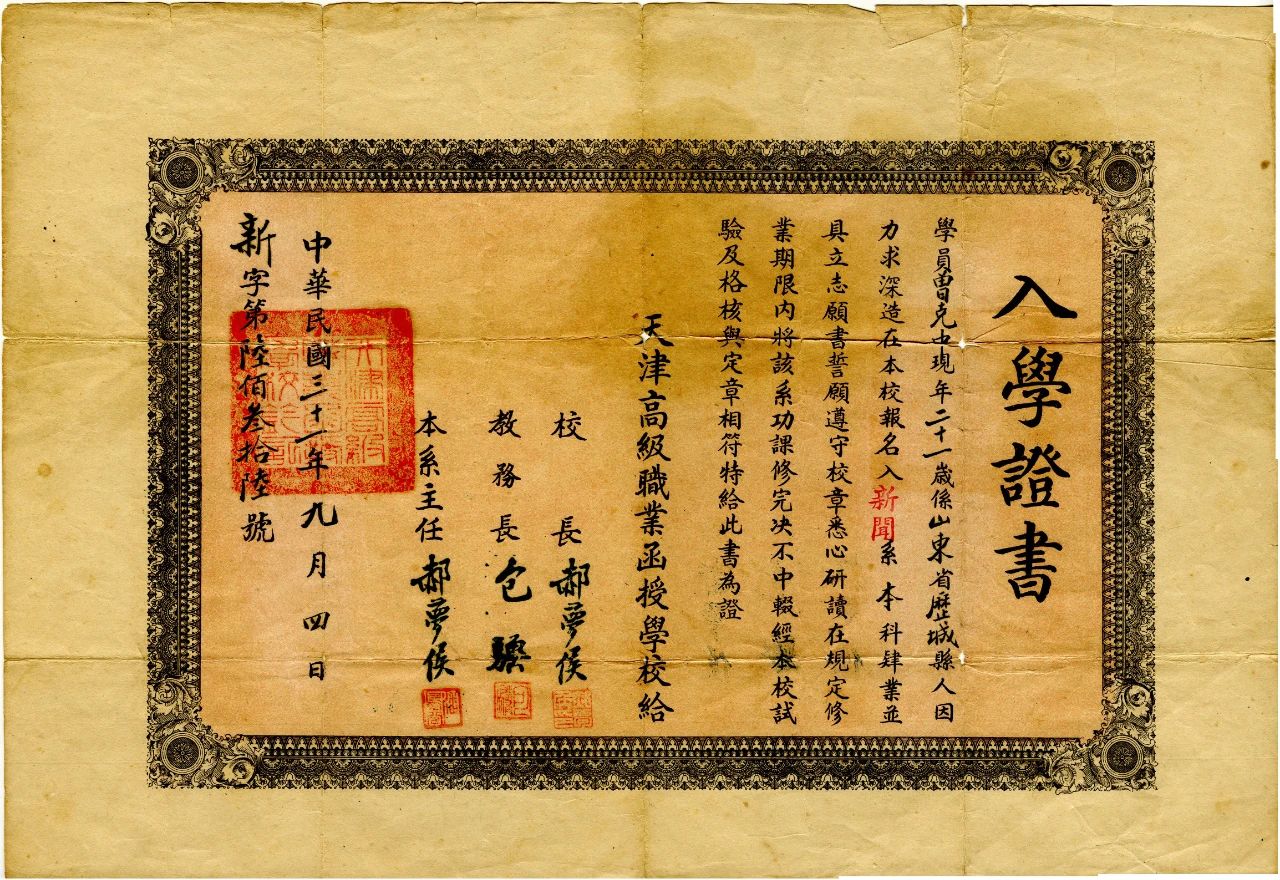 入學證書
學員曾克中現年二十一歲係山東省歷城縣人因
力求深造在本校報名入新聞系本科肄業並
具立志願書誓願遵守校章悉心研讀在規定修
業期限内將該系功課修完决不中輟經本校試
驗及格核與定章相符特給此書為證
天津高級職業函授學校給
校長郝夢侯
教務長包
本系主任郝夢侯
中華民國三十一年九月四日
新字第陸佰叁拾陸號